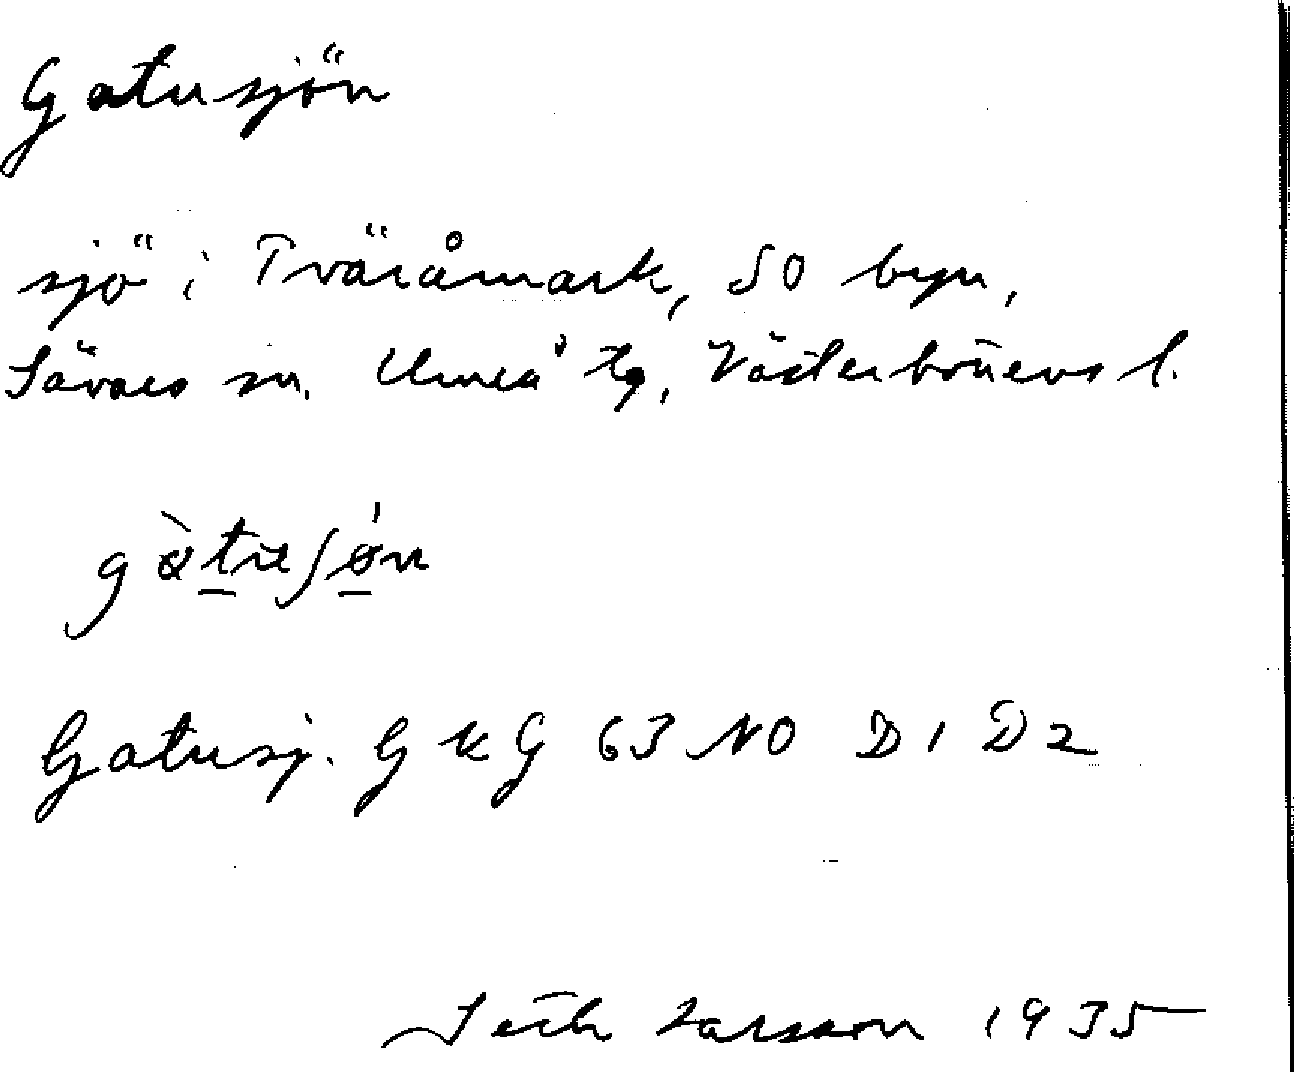 Gatusjön
sjö i Tväråmark, SO byn,
Sävars sn. Umeå tg, Västerbottens l.
gàtuʃǿn
Gatusj. GKG 63 NO D1 D2
Seth Larsson 1935